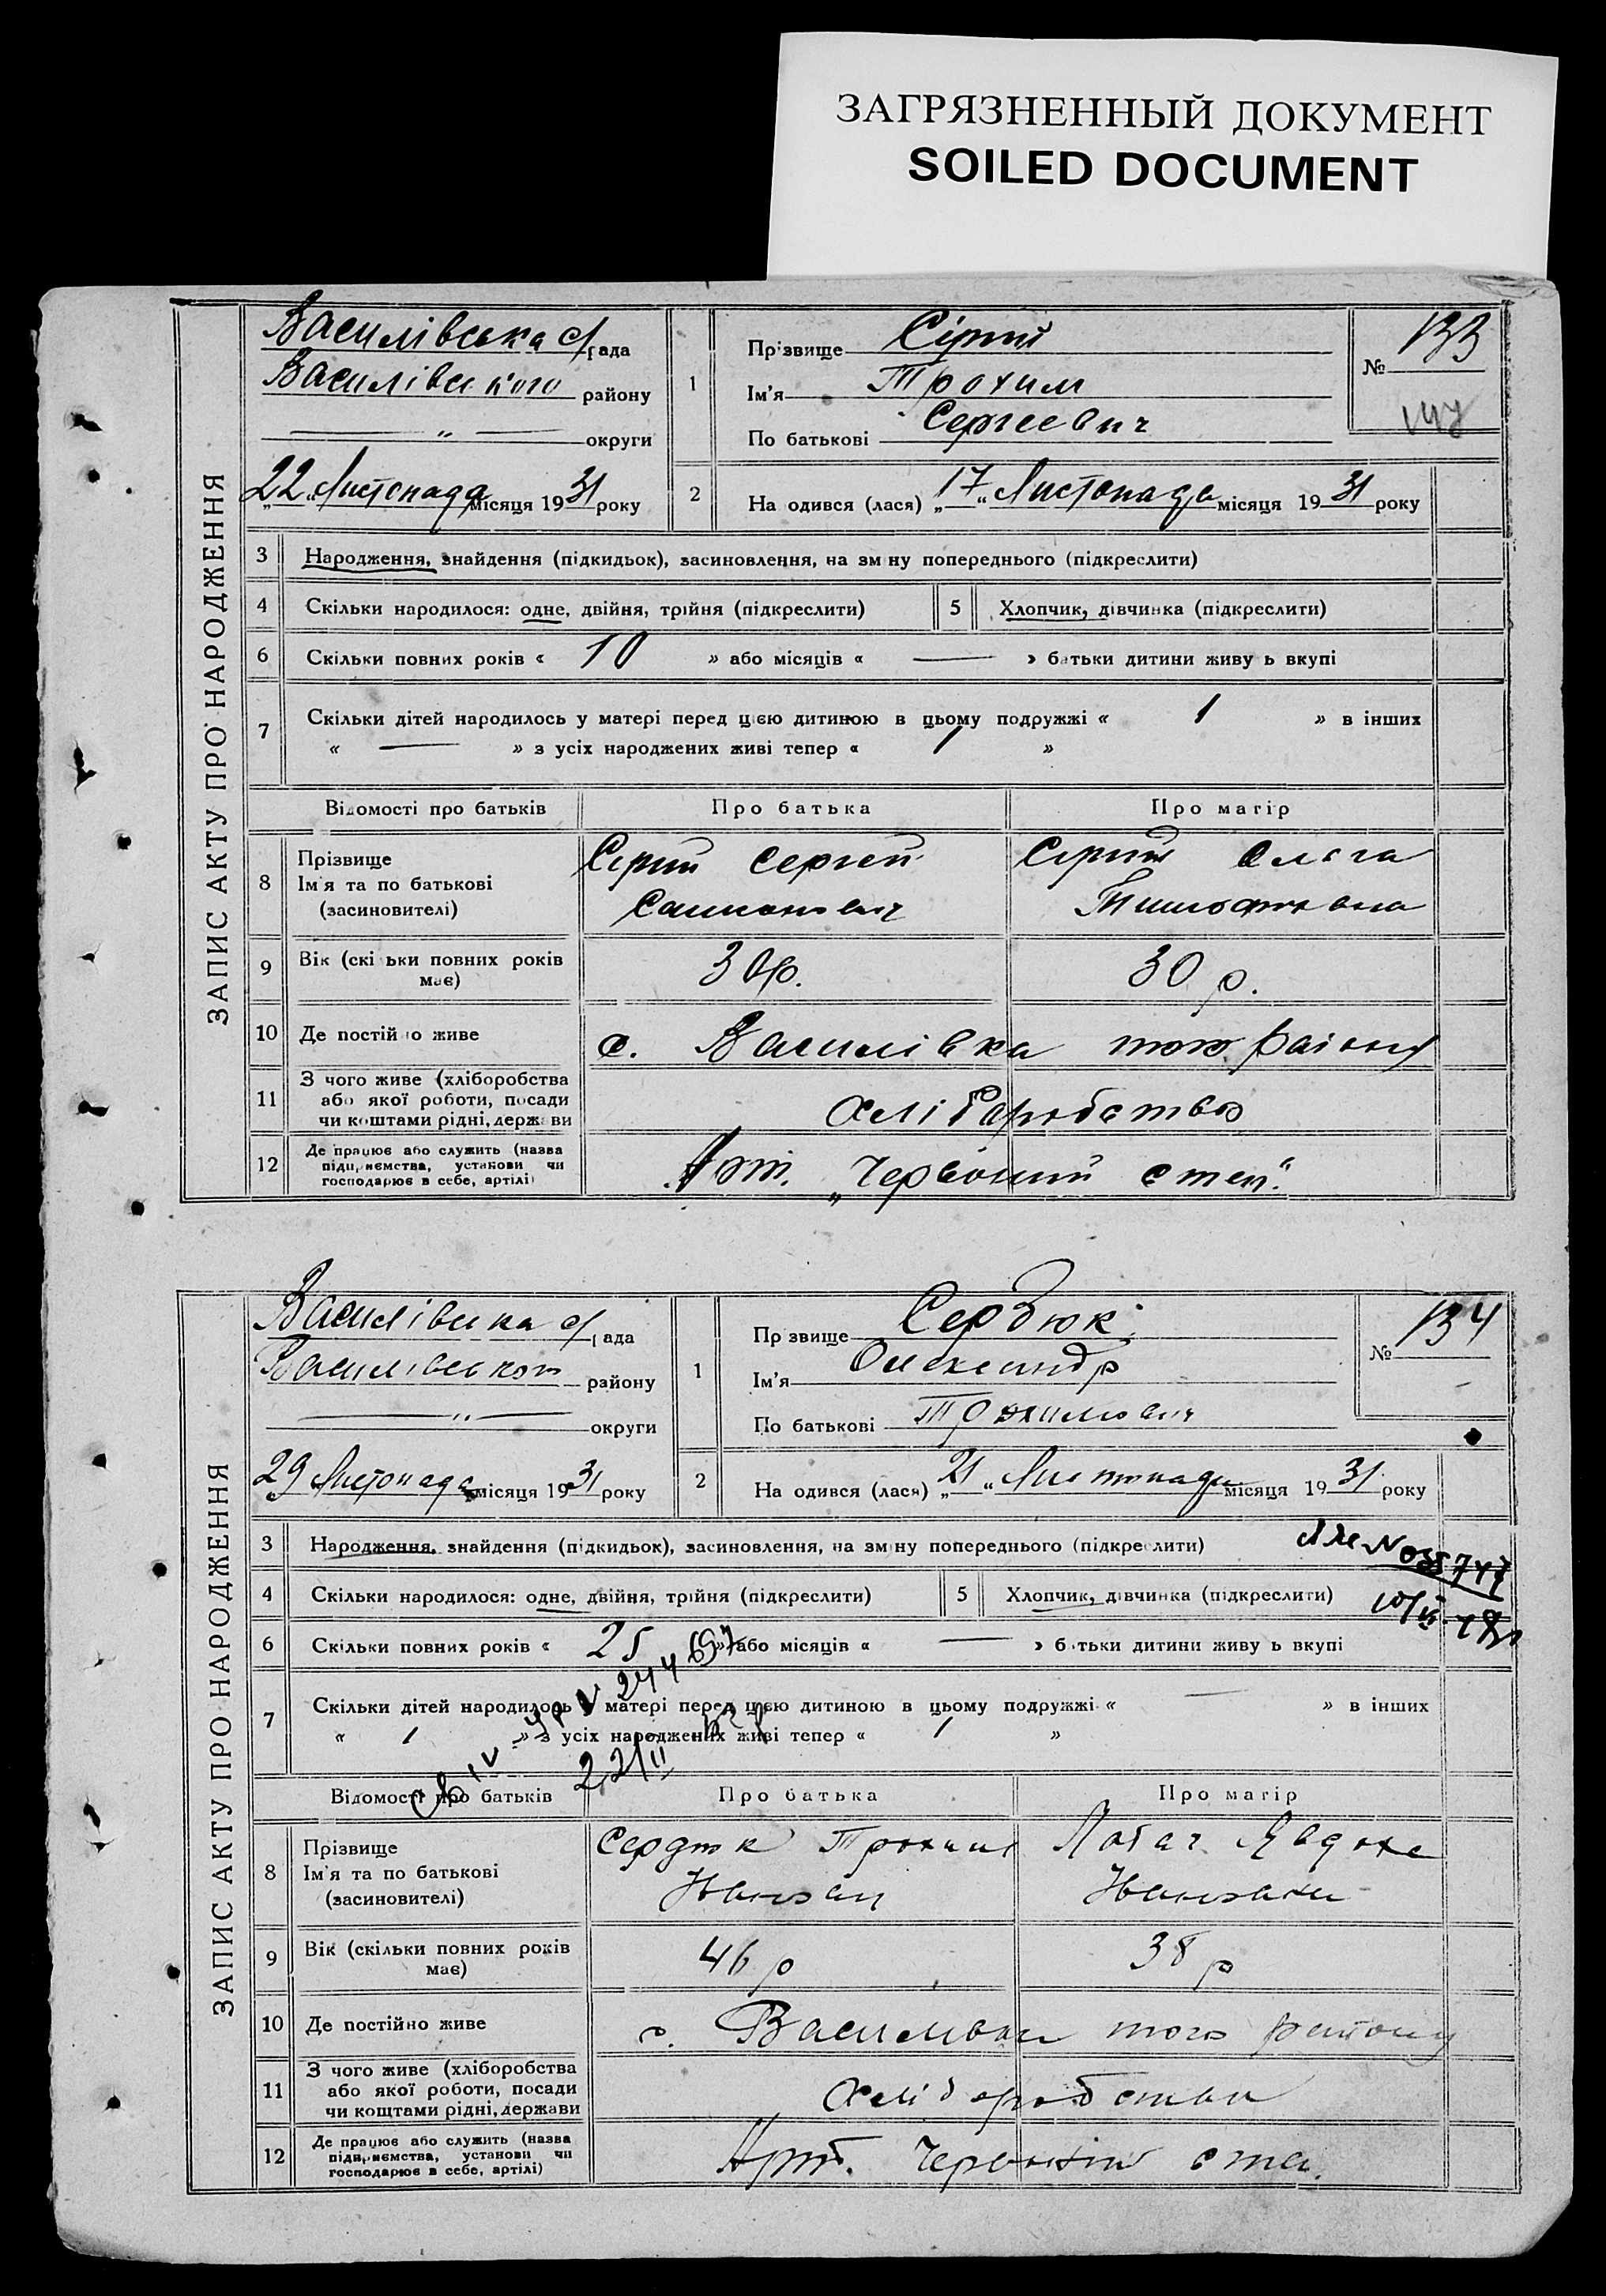 ЗАГРЯЗНЕННЫЙ ДОКУМЕНТ
SOILED DOCUMENT
ЗАПИС АКТУ ПРО НАРОДЖЕННЯ
Василівська с/рада
Василівського району
— „ — округи
22 Листопада місяця 1931 року
1
Прізвище Сірий
Ім'я Трохим
По батькові Сергеевич
№ 133
147
2
На одився (лася) „17“ Листопада місяця 1931 року
3 Народження, знайдення (підкидьок), засиновлення, на зм ну попереднього (підкреслити)
4 Скільки народилося: одне, двійня, трійня (підкреслити) 5 Хлопчик, дівчинка (підкреслити)
6 Скільки повних років « 10 » або місяців « — » батьки дитини живу ь вкупі
7 Скільки дітей народилось у матері перед цією дитиною в цьому подружжі « 1 » в інших
« — » з усіх народжених живі тепер « 1 »
Відомості про батьків Про батька Про матір
8 Прізвище
Ім'я та по батькові
(засиновителі)
Сірий Сергей
Сірий Олга
Тимофіївна
9 Вік (скі ьки повних років
має)
30р. 30 р.
10 Де постій о живе с. Василівка того району
11 З чого живе (хліборобства
або якої роботи, посади
чи коштами рідні, держави
хліборобство
12 Де працює або служить (назва
підприємства, установи чи
господарює в себе, артілі)
Арт. „Червоний степ“
ЗАПИС АКТУ ПРО НАРОДЖЕННЯ
Василівська с/рада
Василівського району
— „ — округи
29 Листопада місяця 1931 року
1
Пр звище Сердюк
Ім'я Олександр
По батькові Трохимович
№ 134
2
На одився (лася) „21“ Листопада місяця 1931 року
3 Народження, знайдення (підкидьок), засиновлення, на зм ну попереднього (підкреслити)
4 Скільки народилося: одне, двійня, трійня (підкреслити) 5 Хлопчик, дівчинка (підкреслити)
6 Скільки повних років « 25 » або місяців « — » б тьки дитини живу ь вкупі
7 Скільки дітей народилось у матері перед цією дитиною в цьому подружжі « — » в інших
« 1 » з усіх народжених живі тепер « 1 »
22/II
Відомості про батьків Про батька Про матір
8 Прізвище
Ім'я та по батькові
(засиновителі)
Сердюк Трохим
Іванович
Лобач Явдоха
Івановна
9 Вік (скільки повних років
має)
46 р 38 р
10 Де постійно живе с. Василівка того району
11 З чого живе (хліборобства
або якої роботи, посади
чи коштами рідні, держави
хліборобство
12 Де працює або служить (назва
підприємства, установи чи
господарює в себе, артілі)
Арт. Червоний степ.